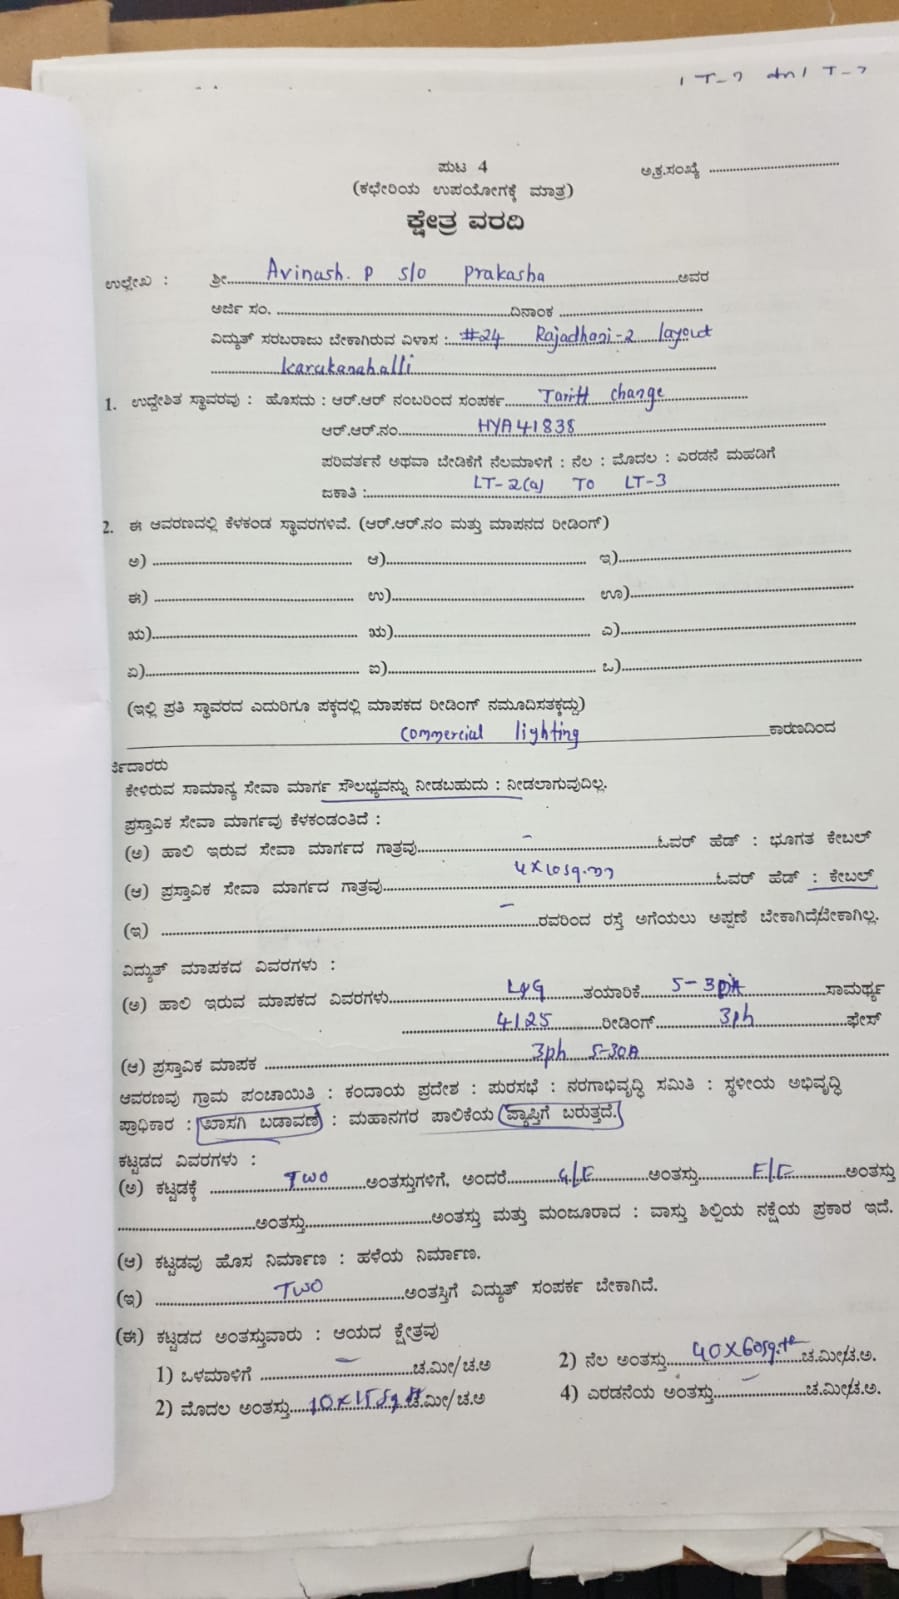 ಪುಟ 4
ಅ.ಕ್ರ.ಸಂಖ್ಯೆ ........
(ಕಛೇರಿಯ ಉಪಯೋಗಕ್ಕೆ ಮಾತ್ರ)
ಕ್ಷೇತ್ರ ವರದಿ
ಉಲ್ಲೇಖ : ಶ್ರೀ.... Avinash. P s/o Prakasha ....ಅವರ
ಅರ್ಜಿ ಸಂ. ........ದಿನಾಂಕ ........
ವಿದ್ಯುತ್ ಸರಬರಾಜು ಬೇಕಾಗಿರುವ ವಿಳಾಸ : #24 Rajadhani-2 layout
Karakanahalli
1. ಉದ್ದೇಶಿತ ಸ್ಥಾವರವು : ಹೊಸದು : ಆರ್.ಆರ್ ನಂಬರಿಂದ ಸಂಪರ್ಕ.... Tariff change
ಆರ್.ಆರ್.ನಂ.... HYA41838
ಪರಿವರ್ತನೆ ಅಥವಾ ಬೇಡಿಕೆಗೆ ನೆಲಮಾಳಿಗೆ : ನೆಲ : ಮೊದಲ : ಎರಡನೆ ಮಹಡಿಗೆ
ಜಕಾತಿ :.... LT-2(a) TO LT-3
2. ಈ ಆವರಣದಲ್ಲಿ ಕೆಳಕಂಡ ಸ್ಥಾವರಗಳಿವೆ. (ಆರ್.ಆರ್.ನಂ ಮತ್ತು ಮಾಪನದ ರೀಡಿಂಗ್)
ಅ) ........ ಆ)........ ಇ)........
ಈ) ........ ಉ)........ ಊ)........
ಋ)........ ಋ)........ ಎ)........
ಏ)........ ಐ)........ ಒ)........
(ಇಲ್ಲಿ ಪ್ರತಿ ಸ್ಥಾವರದ ಎದುರಿಗೂ ಪಕ್ಕದಲ್ಲಿ ಮಾಪಕದ ರೀಡಿಂಗ್ ನಮೂದಿಸತಕ್ಕದ್ದು)
Commercial lighting ಕಾರಣದಿಂದ
ರ್ತಿದಾರರು
ಕೇಳಿರುವ ಸಾಮಾನ್ಯ ಸೇವಾ ಮಾರ್ಗ ಸೌಲಭ್ಯವನ್ನು ನೀಡಬಹುದು : ನೀಡಲಾಗುವುದಿಲ್ಲ.
ಪ್ರಸ್ತಾವಿಕ ಸೇವಾ ಮಾರ್ಗವು ಕೆಳಕಂಡಂತಿದೆ :
(ಅ) ಹಾಲಿ ಇರುವ ಸೇವಾ ಮಾರ್ಗದ ಗಾತ್ರವು.... – ....ಓವರ್ ಹೆಡ್ : ಭೂಗತ ಕೇಬಲ್
(ಆ) ಪ್ರಸ್ತಾವಿಕ ಸೇವಾ ಮಾರ್ಗದ ಗಾತ್ರವು.... 4x10sq.mm ....ಓವರ್ ಹೆಡ್ : ಕೇಬಲ್
(ಇ) .... – ....ರವರಿಂದ ರಸ್ತೆ ಅಗೆಯಲು ಅಪ್ಪಣೆ ಬೇಕಾಗಿದೆ/ಬೇಕಾಗಿಲ್ಲ.
ವಿದ್ಯುತ್ ಮಾಪಕದ ವಿವರಗಳು :
(ಅ) ಹಾಲಿ ಇರುವ ಮಾಪಕದ ವಿವರಗಳು.... L&G ....ತಯಾರಿಕೆ.... ....ಸಾಮರ್ಥ್ಯ
4125 ....ರೀಡಿಂಗ್.... 3ph ....ಫೇಸ್
(ಆ) ಪ್ರಸ್ತಾವಿಕ ಮಾಪಕ .... 3ph 5-30A
ಆವರಣವು ಗ್ರಾಮ ಪಂಚಾಯಿತಿ : ಕಂದಾಯ ಪ್ರದೇಶ : ಪುರಸಭೆ : ನರಗಾಭಿವೃದ್ಧಿ ಸಮಿತಿ : ಸ್ಥಳೀಯ ಅಭಿವೃದ್ಧಿ
ಪ್ರಾಧಿಕಾರ : ಖಾಸಗಿ ಬಡಾವಣೆ : ಮಹಾನಗರ ಪಾಲಿಕೆಯ ವ್ಯಾಪ್ತಿಗೆ ಬರುತ್ತದೆ.
ಕಟ್ಟಡದ ವಿವರಗಳು :
(ಅ) ಕಟ್ಟಡಕ್ಕೆ .... Two ....ಅಂತಸ್ತುಗಳಿಗೆ, ಅಂದರೆ.... G/F ....ಅಂತಸ್ತು.... F/F ....ಅಂತಸ್ತು
........ಅಂತಸ್ತು........ಅಂತಸ್ತು ಮತ್ತು ಮಂಜೂರಾದ : ವಾಸ್ತು ಶಿಲ್ಪಿಯ ನಕ್ಷೆಯ ಪ್ರಕಾರ ಇದೆ.
(ಆ) ಕಟ್ಟಡವು ಹೊಸ ನಿರ್ಮಾಣ : ಹಳೆಯ ನಿರ್ಮಾಣ.
(ಇ) .... Two ....ಅಂತಸ್ತಿಗೆ ವಿದ್ಯುತ್ ಸಂಪರ್ಕ ಬೇಕಾಗಿದೆ.
(ಈ) ಕಟ್ಟಡದ ಅಂತಸ್ತುವಾರು : ಆಯದ ಕ್ಷೇತ್ರವು
1) ಒಳಮಾಳಿಗೆ .... – ....ಚ.ಮೀ/ಚ.ಅ 2) ನೆಲ ಅಂತಸ್ತು.... 40x60sq.ft ....ಚ.ಮೀ/ಚ.ಅ.
2) ಮೊದಲ ಅಂತಸ್ತು.... 10x15sq.ft ....ಚ.ಮೀ/ಚ.ಅ 4) ಎರಡನೆಯ ಅಂತಸ್ತು.... – ....ಚ.ಮೀ/ಚ.ಅ.